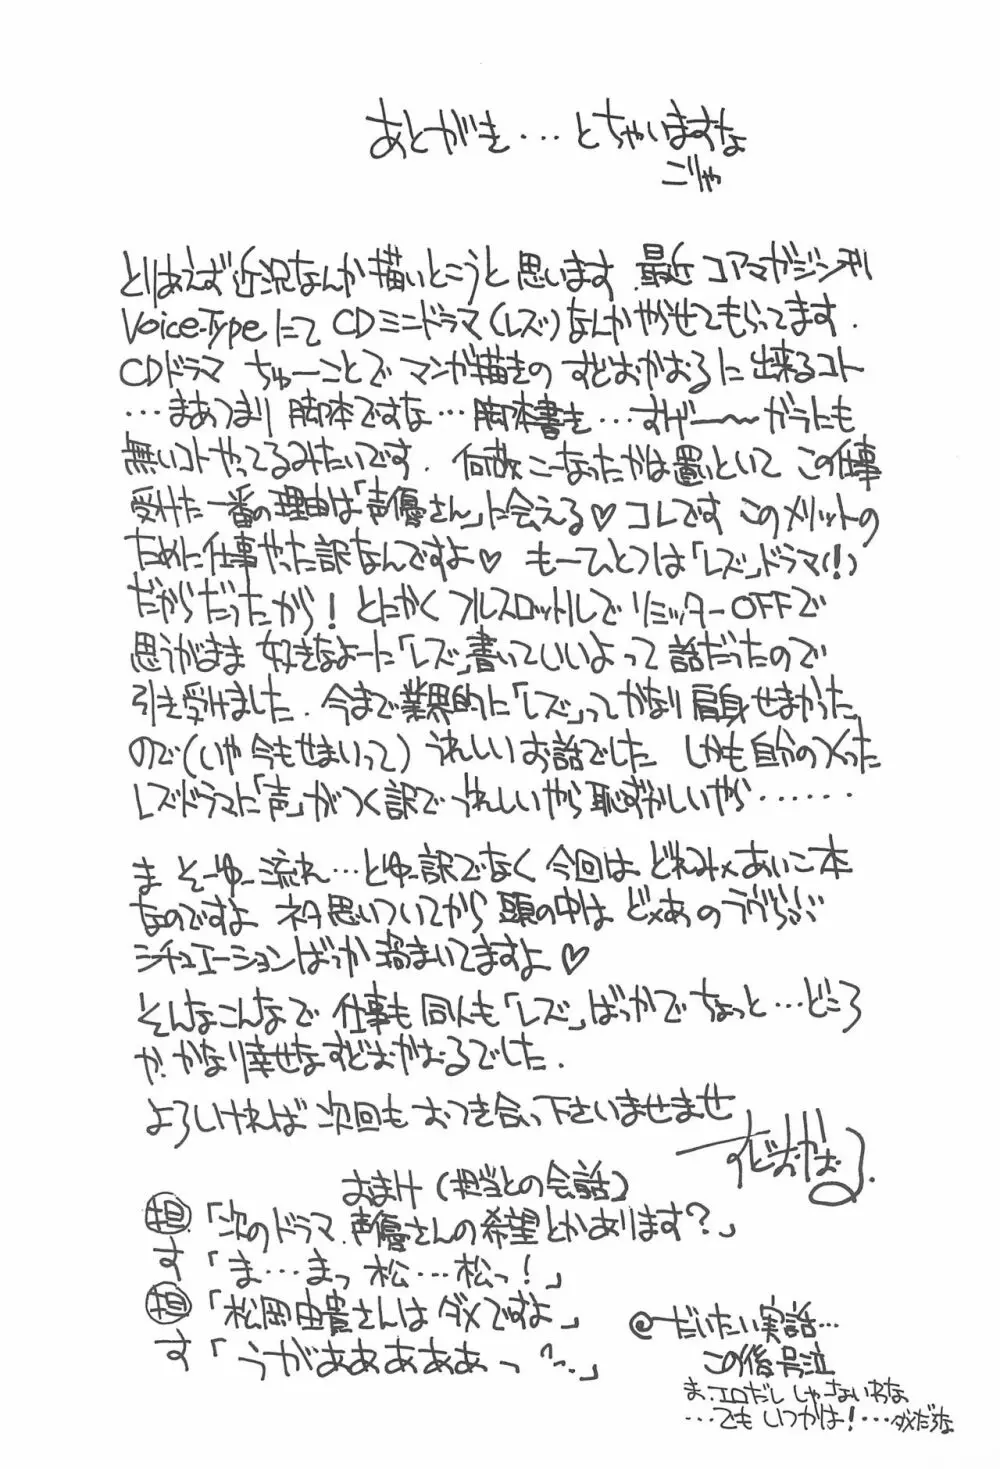 あとがき...とちゃいますな
こりゃ
とりあえず近況なんか描いとこうと思います.最近コアマガジン刊
Voice-Typeにて CDミニドラマ(レズ)なんかやらせてもらってます.
CDドラマ ちゅーことで マンガ描きの すどおかおるに 出来るコト
...まあつまり 脚本ですな...脚本書き...すげー〜がらにも
無いコトやってるみたいです. 何故こーなったかは置いといて この仕事
受けた一番の理由は「声優さん」に会える♡ コレです このメリットの
ために仕事やった訳なんですよ♡ もーひとつは「レズ」ドラマ(!)
だからだったから! とにかく フルスロットルでリミッターOFFで
思うがまま 好きなよーに「レズ」書いていいよって 話だったので
引き受けました. 今まで業界的に「レズ」ってかなり肩身せまかった
ので(いや今もせまいって) うれしいお話でした しかも自分のつくった
レズドラマに「声」がつく訳で うれしいやら恥ずかしいやら......
ま そーゆー流れ...とゆー訳でなく 今回は どれみ×あいこ本
なのですよ ネタ思いついてから 頭の中は ど×あのラヴらぶ
シチュエーションばっか渦まいてますよ♡
そんなこんなで 仕事も同人も「レズ」ばっかで ちょっと...どころ
か.かなり幸せなすどおかおるでした.
よろしければ 次回も おつき合い下さいませませ
すどおかおる.
おまけ(担当との会話)
担「次のドラマ.声優さんの希望とかあります?」
す「ま...まっ 松...松っ!」
担「松岡由貴さんは ダメですよ」
す「うがああああああっ〜...」
@だいたい実話...
この後号泣
ま.エロだし しゃーないわな
...でも いつかは!...ダメだろな